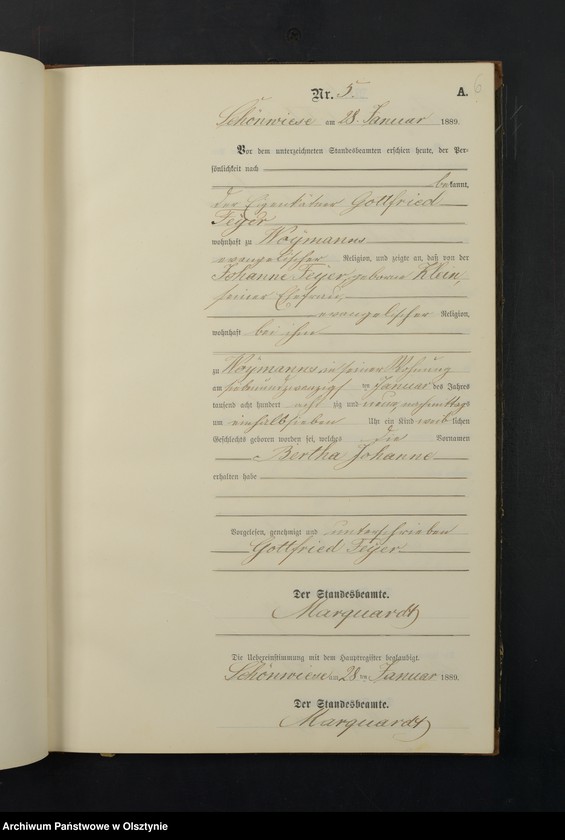 6
Nr. 5. A.
Schönwiese am 28. Januar 1889.
Vor dem unterzeichneten Standesbeamten erschien heute, der Per-
sönlichkeit nach
bekannt,
der Eigenkätner Gottfried
Feyer
wohnhaft zu Woymanns
evangelischer Religion, und zeigte an, daß von der
Johanne Feyer, geborene Klein,
seiner Ehefrau,
evangelischer Religion,
wohnhaft bei ihm
zu Woymanns in seiner Wohnung
am siebenundzwanzigsten Januar des Jahres
tausend acht hundert acht zig und neun nachmittags
um einhalb sieben Uhr ein Kind weib lichen
Geschlechts geboren worden sei, welches die Vornamen
Bertha Johanne
erhalten habe
Vorgelesen, genehmigt und unterschrieben
Gottfried Feyer
Der Standesbeamte.
Marquardt
Die Uebereinstimmung mit dem Hauptregister beglaubigt.
Schönwiese am 28 ten Januar 1889.
Der Standesbeamte.
Marquardt
Archiwum Państwowe w Olsztynie